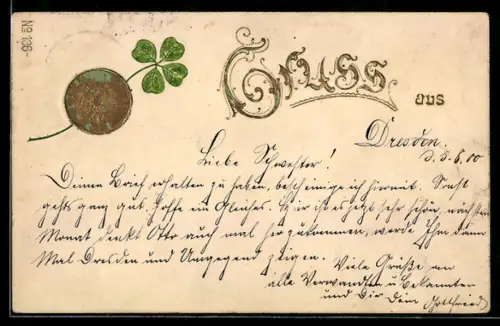 No 136
Gruss
aus
Dresden.
d. 3. 6. 00
Liebe Schwester!
Deinen Brief erhalten zu haben, bescheinige ich hiermit. Sonst
gehts ganz gut. Hoffe ein Gleiches. Hier ist es jetzt sehr schön, nächsten
Monat denkt Otto auch mal herzukommen, werde Ihm dann
Mal Dresden und Umgegend zeigen. Viele Grüße an
alle Verwandten u Bekannten
und Dir Dein Gottfried